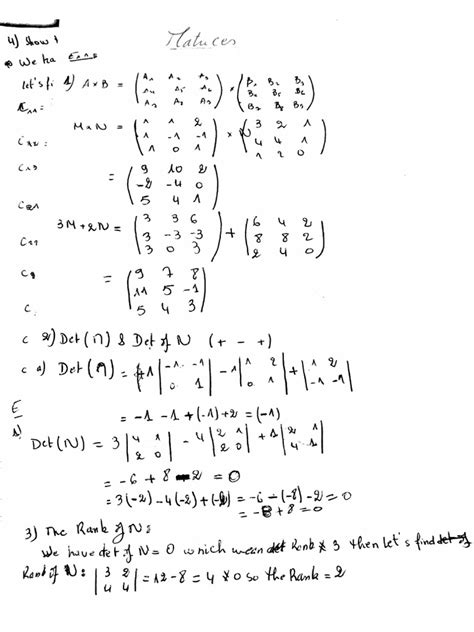 Matrices
4) Show t
We ha
let's fi 1) A×B = (A₁ A₂ A₃ A₂ A₃) × (B₁ B₂ B₃ B₅ B₆ B₇ B₈ B₉)
C₁₁:
M×N = (1 1 2 1 -1 -1 1 0 1) × (3 2 1 4 4 1 1 2 0)
C₁₂:
= (9 10 2 -2 -4 0 5 4 1)
C₁₃
C₂₁
3M+2N = (3 3 6 3 -3 -3 3 0 3) + (6 4 2 8 8 2 2 4 0)
C
= (9 7 8 11 5 -1 5 4 3)
C
c 2) Det(M) & Det of N (+ - +)
c a) Det(M) = +1 |-1 -1 0 1| - 1 |1 2 0 1| + 1 |1 2 -1 -1|
E
= -1 -1 + (-1) + 2 = (-1)
1)
Det(N) = 3 |4 1 2 0| - 4 |2 1 2 0| + 1 |2 1 4 1|
= -6 + 8 - 2 = 0
= 3(-2) - 4(-2) + (-2) = -6 - (-8) - 2 = 0
= -8 + 8 = 0
3) The Rank of N:
We have det of N = 0 which mean Rank ≠ 3 then let's find
Rank of N: |3 2 4 4| = 12 - 8 = 4 ≠ 0 so the Rank = 2